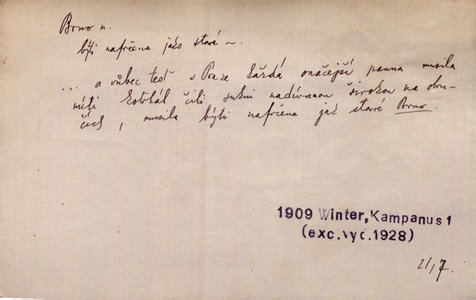 Brno n.
býti nafrčena jako stará ~.
... a vůbec teď v Praze každá onačejší panna musila
míti kotrkál čili sukni nadívanou širokou na obru-
čích, musila býti nafrčena jak staré Brno.
1909 Winter, Kampanus 1
(exc. vyd. 1928)
217.